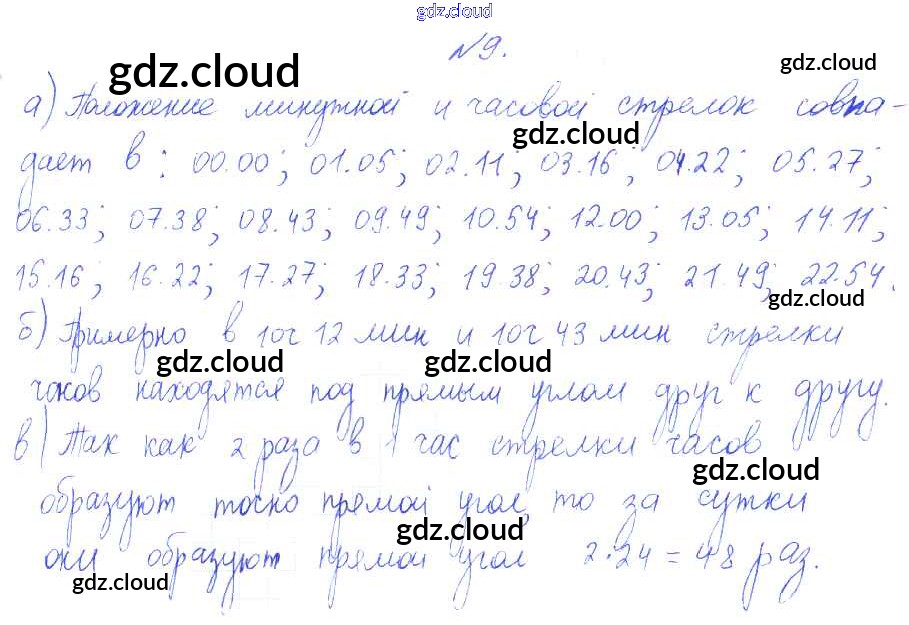 gdz.cloud
№9.
gdz.cloud
gdz.cloud
а) Положение минутной и часовой стрелок совпа-
gdz.cloud
дает в: 00.00; 01.05; 02.11; 03.16; 04.22; 05.27;
06.33; 07.38; 08.43; 09.49; 10.54; 12.00; 13.05; 14.11;
15.16; 16.22; 17.27; 18.33; 19.38; 20.43; 21.49; 22.54.
gdz.cloud
б) Примерно в 10ч 12 мин и 10ч 43 мин стрелки
gdz.cloud gdz.cloud
часов находятся под прямым углом друг к другу.
в) Так как 2 раза в 1 час стрелки часов
gdz.cloud
образуют тоско прямой угол, то за сутки
gdz.cloud
они образуют прямой угол 2·24 = 48 раз.
gdz.cloud